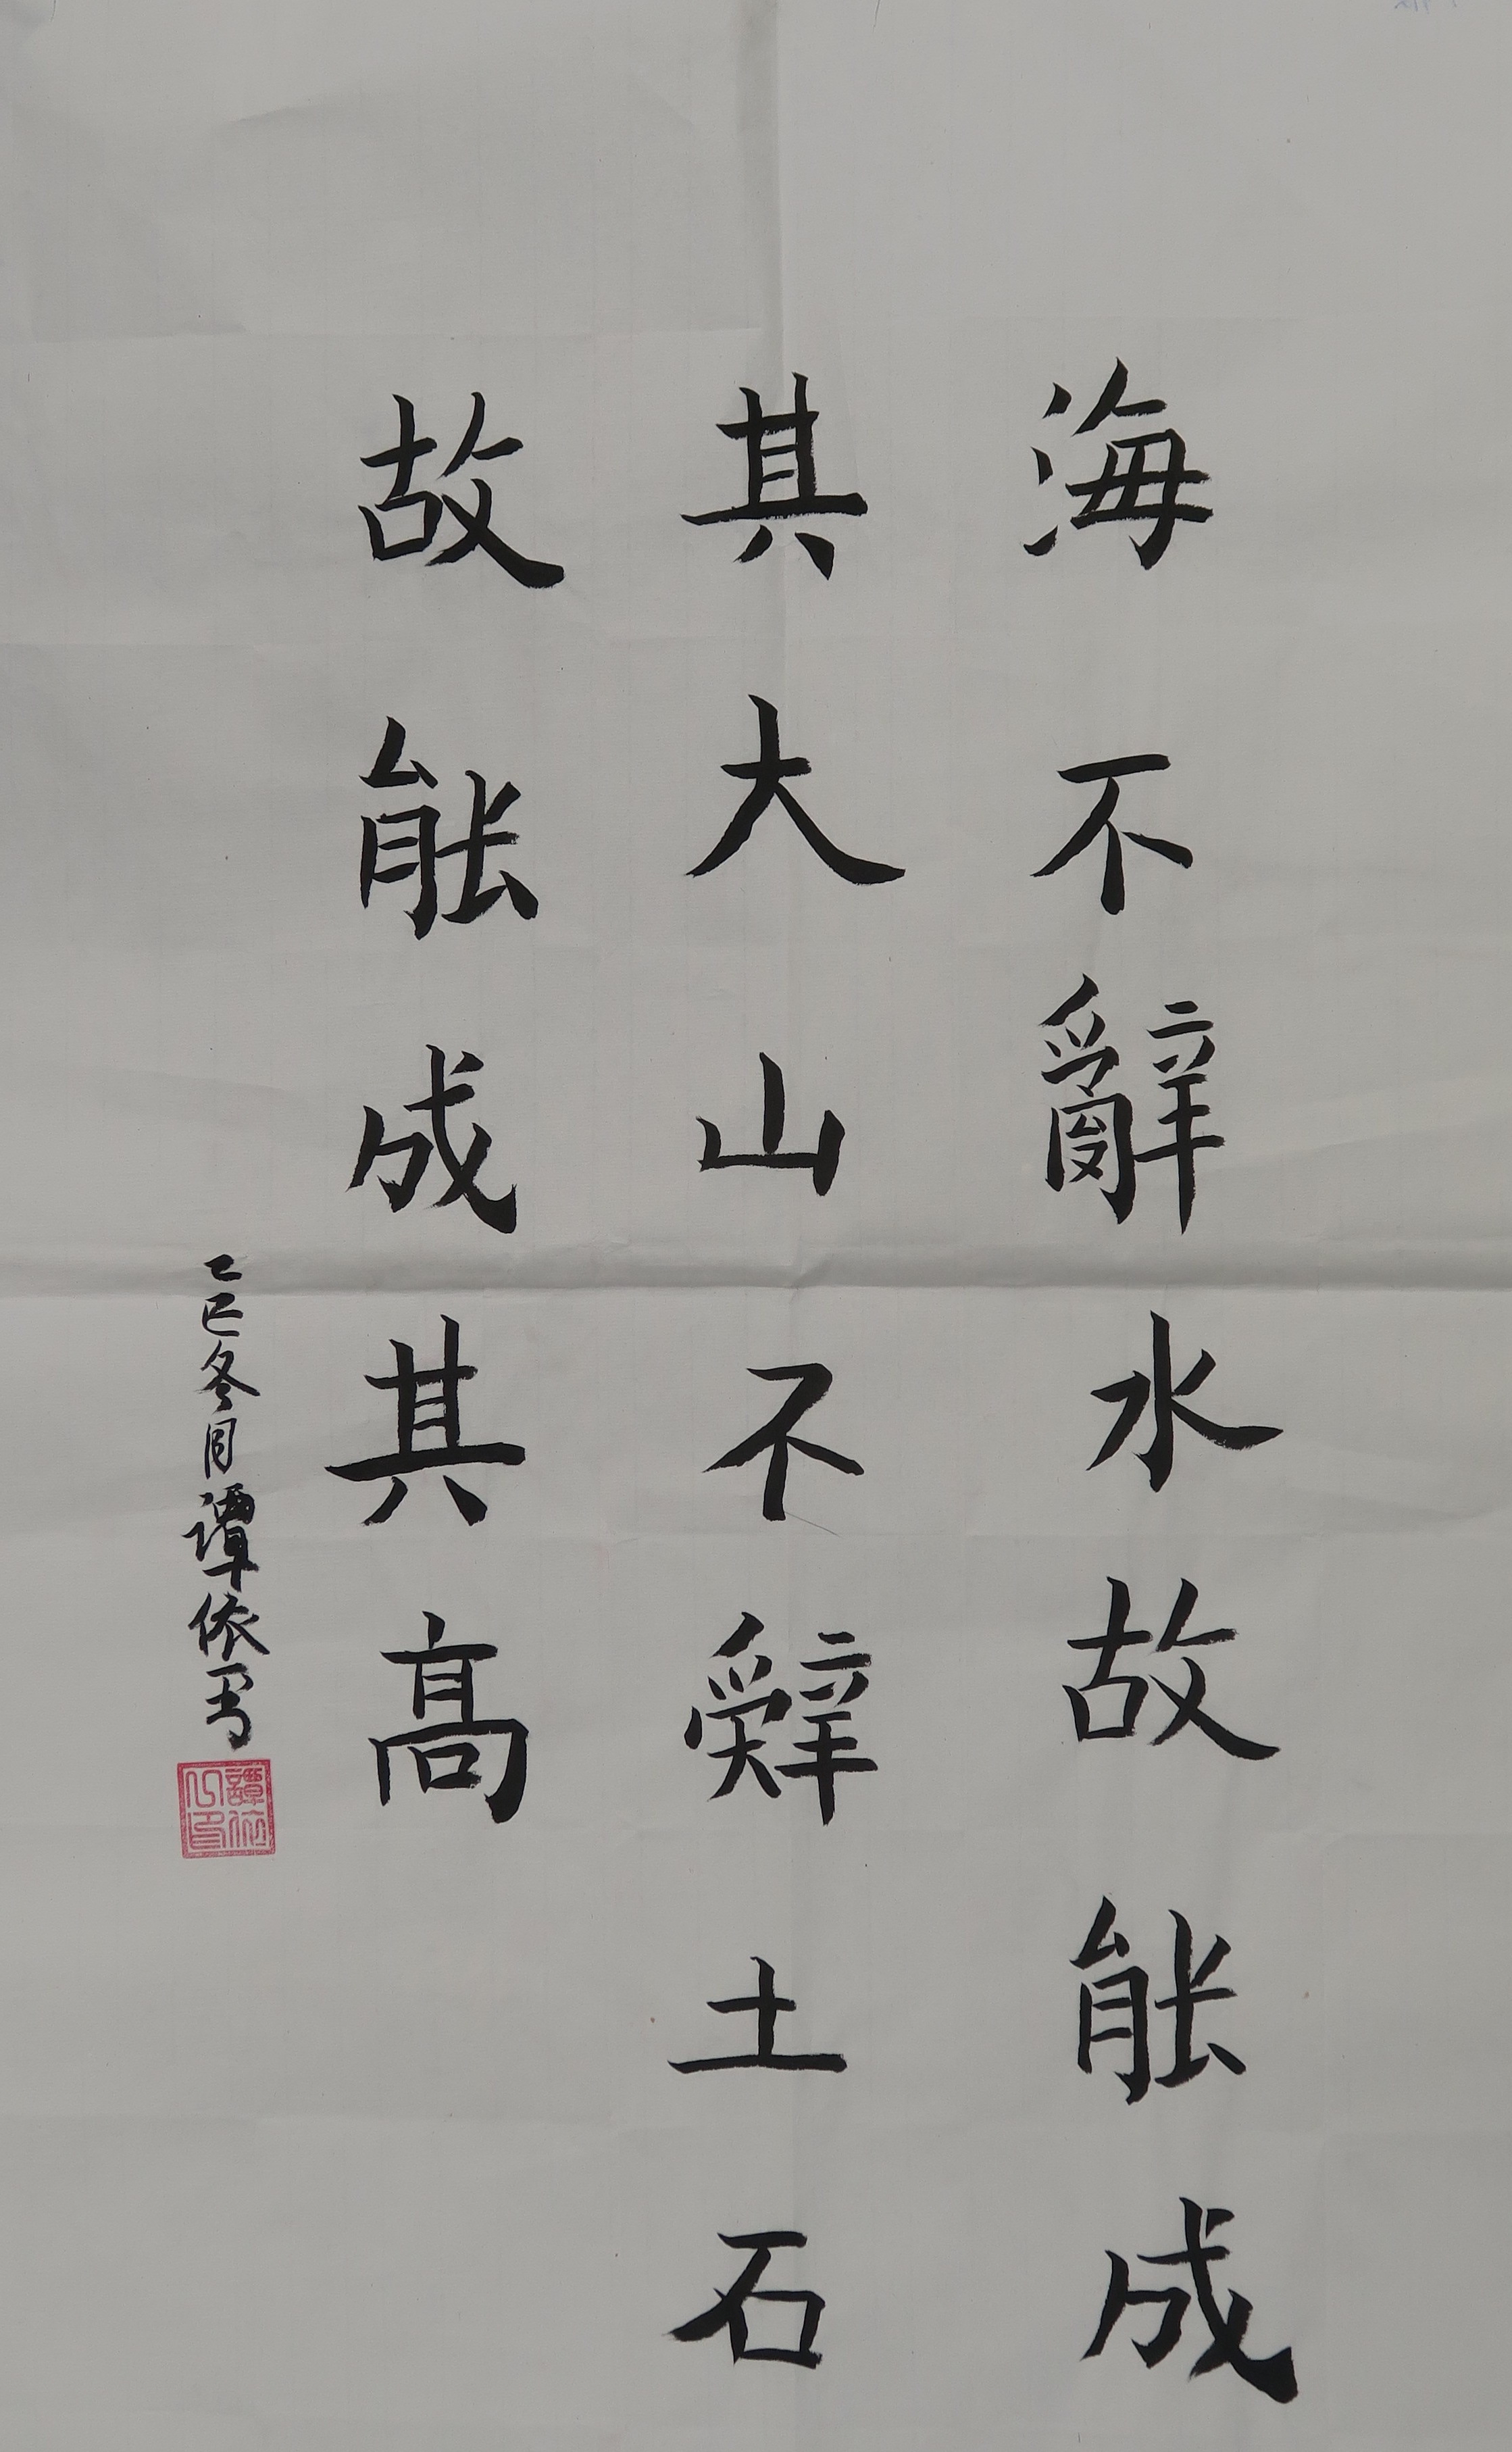 海不辭水故能成
其大山不辤土石
故能成其高
乙巳冬月谭依写
譚依
之印